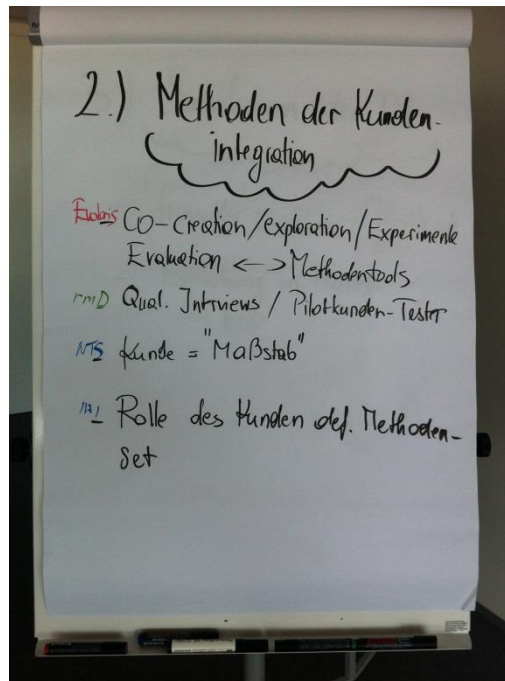 2.) Methoden der Kunden-
integration
CO-Creation/exploration/Experimente
Evaluation <-> Methodentools
rmD Qual. Intrviews / Pilotkunden-Tester
NTS Kunde = "Maßstab"
Rolle des Kunden def. Methoden-
Set